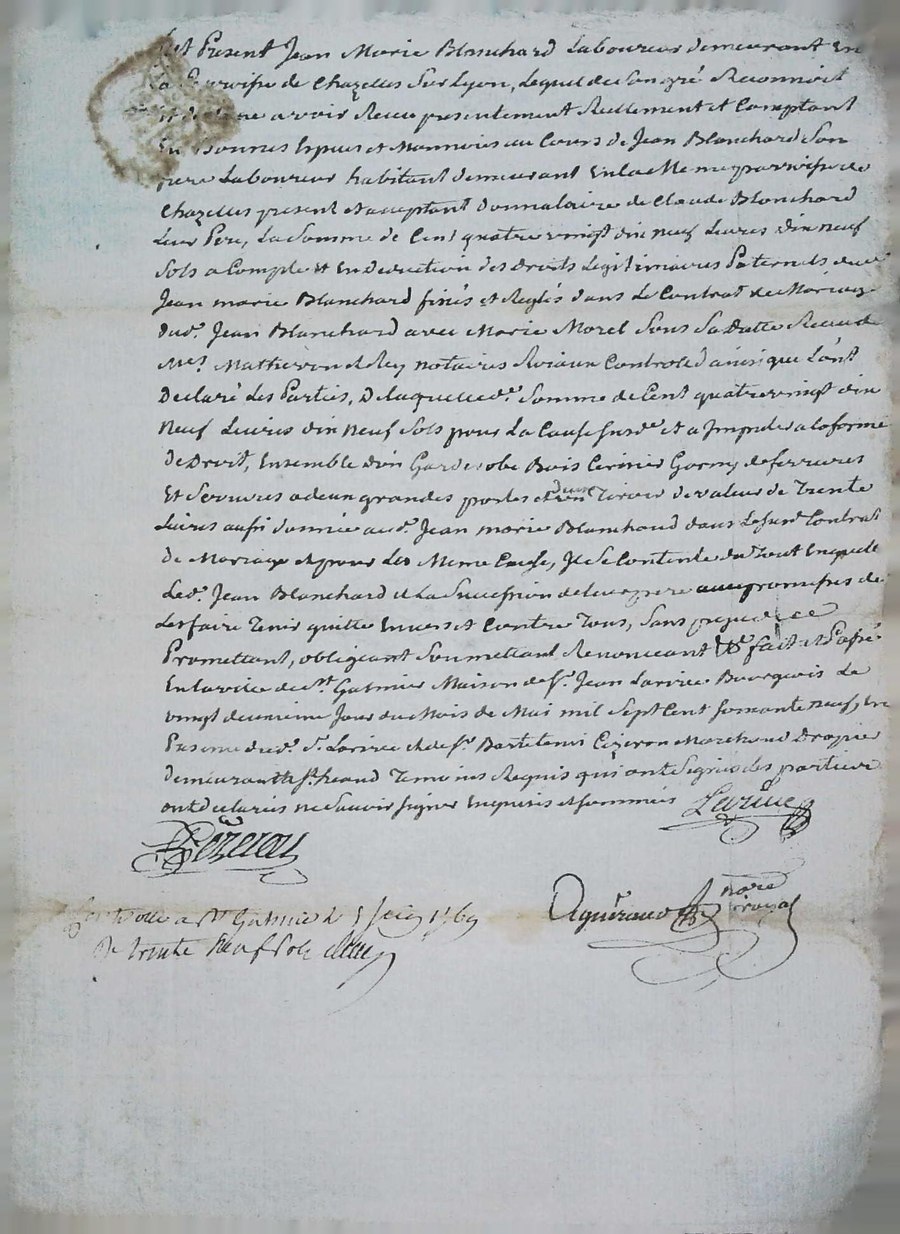 fut Présent Jean Marie Blanchard Laboureur demeurant En
La Parroisse de Chazelles Sur Lyon, Lequel de Son gré Reconnoit
avoir Receu presentement Reellement et Comptant
En Bonnes Espices et Monnoies au Cours de Jean Blanchard Son
frere Laboureur habitant demeurant En la Meme parroisse de
Chazelles present et acceptant donnataire de Claude Blanchard
Leur Pere, La Somme de Cent quatre vingt dix neuf Livres dix neuf
Sols a Compte et En deduction des droits Legitimaires Paternels dud.
Jean marie Blanchard fixés et Reglés dans Le Contrat de Mariage
dud. Jean Blanchard avec Marie Morel Sous Sa datte Receu de
Mes. Mathevon et Rey notaires Roiaux Controllé ainsi que L'ont
Declaré Les Parties, De laquelle de. Somme de Cent quatre vingt dix
Neuf Livres dix Neuf Sols pour La Cause Susde. et a Imputer a la forme
de Droit, Ensemble d'un Garderobe Bois Cerisier Garny de ferrures
Et Serrures a deux grandes portes et deux Tiroir de valeur de Trente
Livres aussi donnée aud. Jean marie Blanchard dans Le Susd. Contrat
de Mariage et pour Les Meme Cause, Il Se Contente du Tout En quitte
Led. Jean Blanchard et La Succession de leur pere avec promesses de
Les faire Tenir quitte Envers et Contre Tous, Sans prejudice
Promettant, obligeant Soumettant Renonceant &c. fait et Passé
En la ville de St. Galmier Maison de Sr. Jean Larive Bourgeois Le
vingt deuxieme Jour du Mois de Mai mil Sept Cent Soixante neuf, En
Presence dud. Sr. Larive et de Sr. Bartelemi Cezeron Marchand Drapier
demeurant St. heand Temoins Requis qui ont Signés Les parties
ont declarées ne Savoir Signer Enquis et Sommés Larive
Cezeron
Controllé a St Galmier le 5 Juin 1769
De trente Neuf Sols
notre
royal